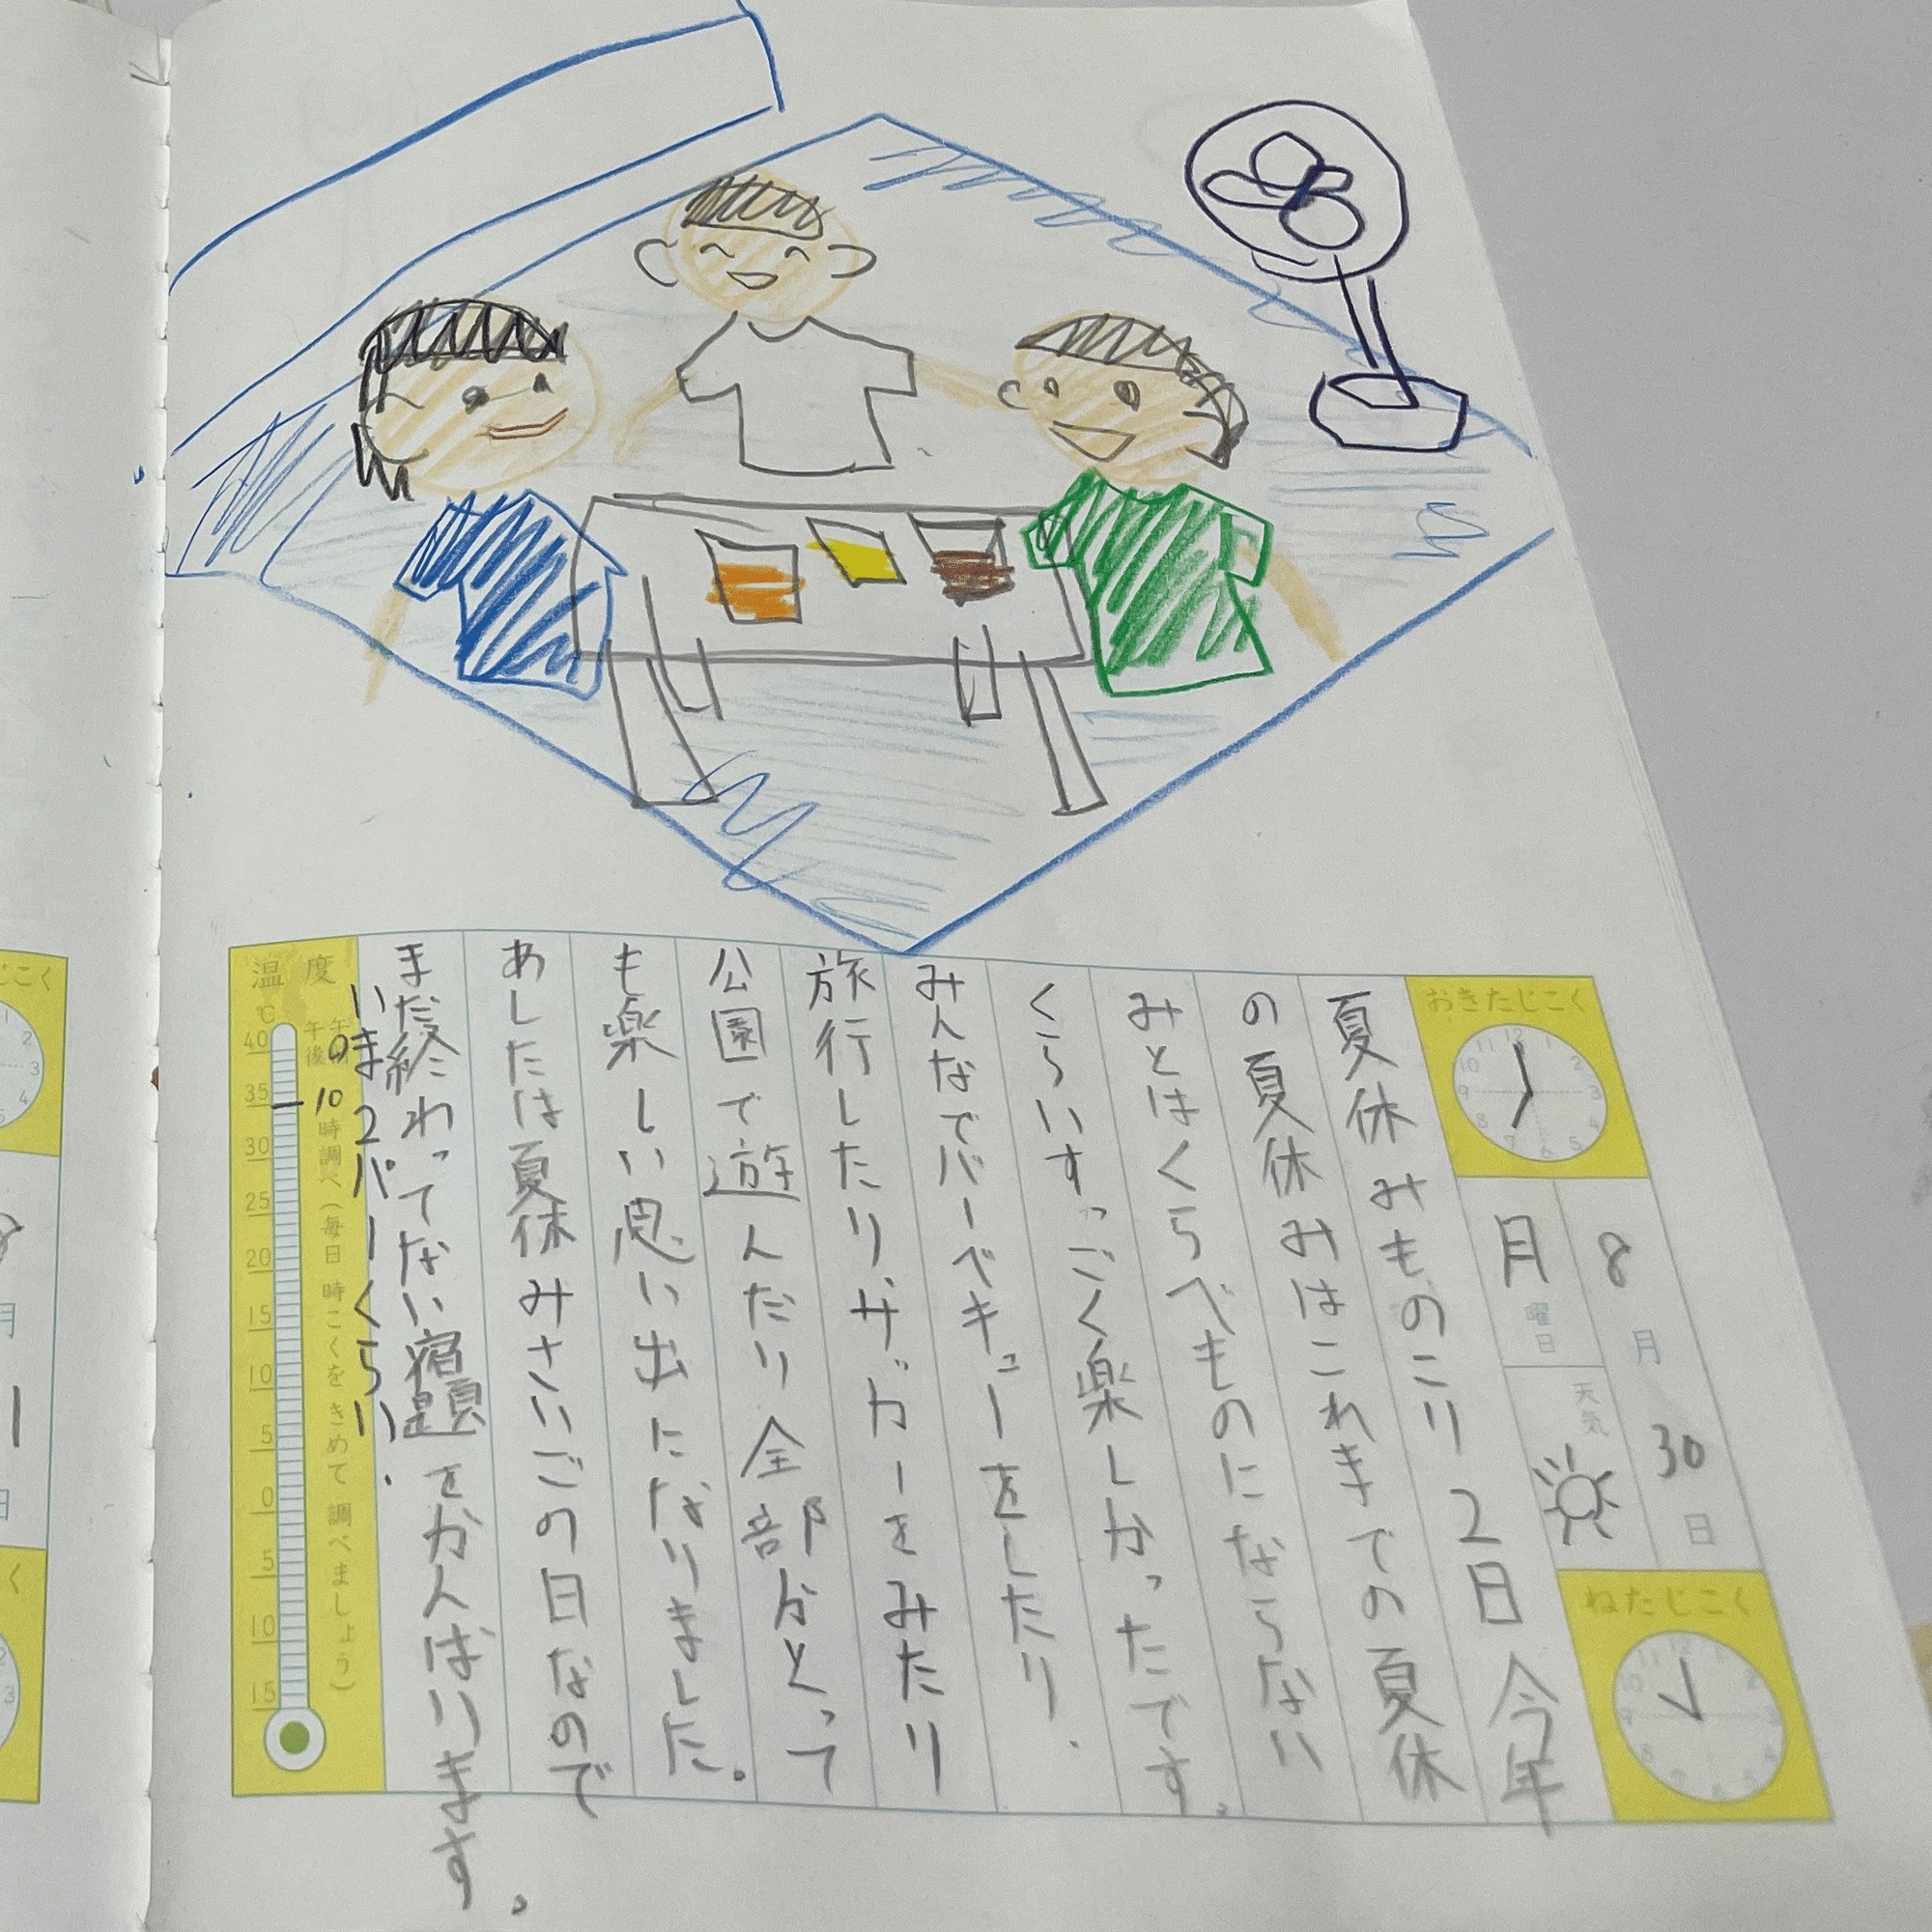 おきたじこく
12
1
2
3
4
5
6
7
8
9
10
11
8月30日
月曜日
天気
ねたじこく
夏休みものこり2日今年
の夏休みはこれまでの夏休
みとはくらべものにならない
くらいすっごく楽しかったです。
みんなでバーベキューをしたり、
旅行したりザガーをみたり
公園で遊んだり全部がとって
も楽しい思い出になりました。
あしたは夏休みさいごの日なので
まだ終わってない宿題をがんばります。
いま2パーくらい.
温度
℃
午前
午後
10時調べ(毎日時こくをきめて調べましょう)
40
35
30
25
20
15
10
5
0
5
10
15